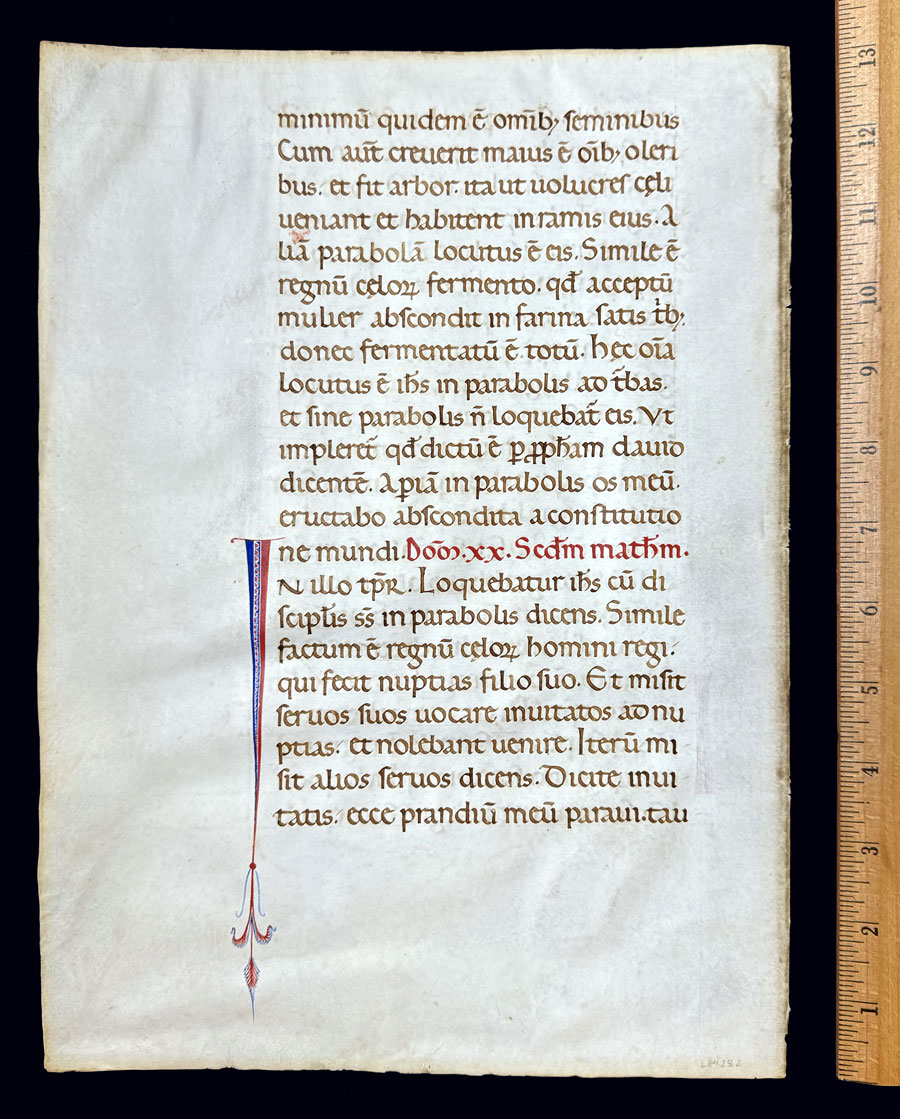 minimū quidem ē om̄ibꝫ seminibus
Cum aūt creuerit maius ē oīb; oleri
bus. et fit arbor. ita ut uolucres cęli
ueniant et habitent in ramis eius. A
liā parabolā locutus ē eis. Simile ē
regnū cęloꝝ fermento. qđ acceptū
mulier abscondit in farina satis t̄b;
donec fermentatū ē totū. hęc oīa
locutus ē ih̄s in parabolis ad t̄bas.
et sine parabolis n̄ loquebat̄ eis. Vt
impleret̄ qđ dictū ē ꝑ ꝓph̄am dauid
dicentē. Aꝑiā in parabolis os meū.
eructabo abscondita a constitutio
ne mundi. Dōm̄. xx. Scd̄m math̄m.
IN illo tp̄R. Loquebatur ih̄s cū di
scipl̄is ss̄ in parabolis dicens. Simile
factum ē regnū cęloꝝ homini regi.
qui fecit nuptias filio suo. Et misit
seruos suos uocare inuitatos ad nu
ptias. et nolebant uenire. Iterū mi
sit alios seruos dicens. Dicite inui
tatis. ecce prandiū meū paraui. tau
1
2
3
4
5
6
7
8
9
10
11
12
13